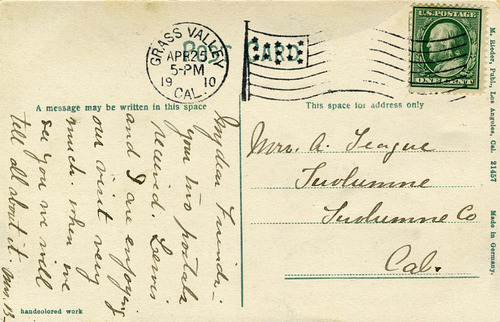 POST CARD
GRASS VALLEY
APR 25
5-PM
19 10
CAL.
U.S. POSTAGE
ONE CENT
A message may be written in this space
This space for address only
My dear Friend:-
your two postals
received. Lewis
and I are enjoying
our visit very
much when we
see you we will
tell all about it. Mrs. B-
Mrs. A. Teague
Tuolumne
Tuolumne Co
Cal.
M. Rieder, Publ., Los Angeles, Cal. 21457
Made in Germany.
handcolored work